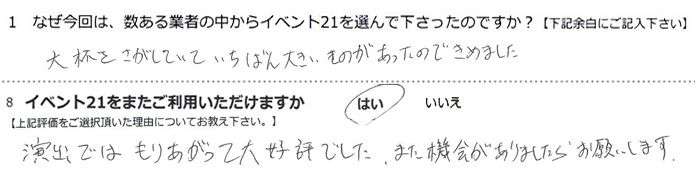 1 なぜ今回は、数ある業者の中からイベント21を選んで下さったのですか？【下記余白にご記入下さい】
大杯をさがしていていちばん大きいものがあったのできめました
8 イベント21をまたご利用いただけますか はい いいえ
【上記評価をご選択頂いた理由についてお教え下さい。】
演出ではもりあがって大好評でした、また機会がありましたらお願いします.